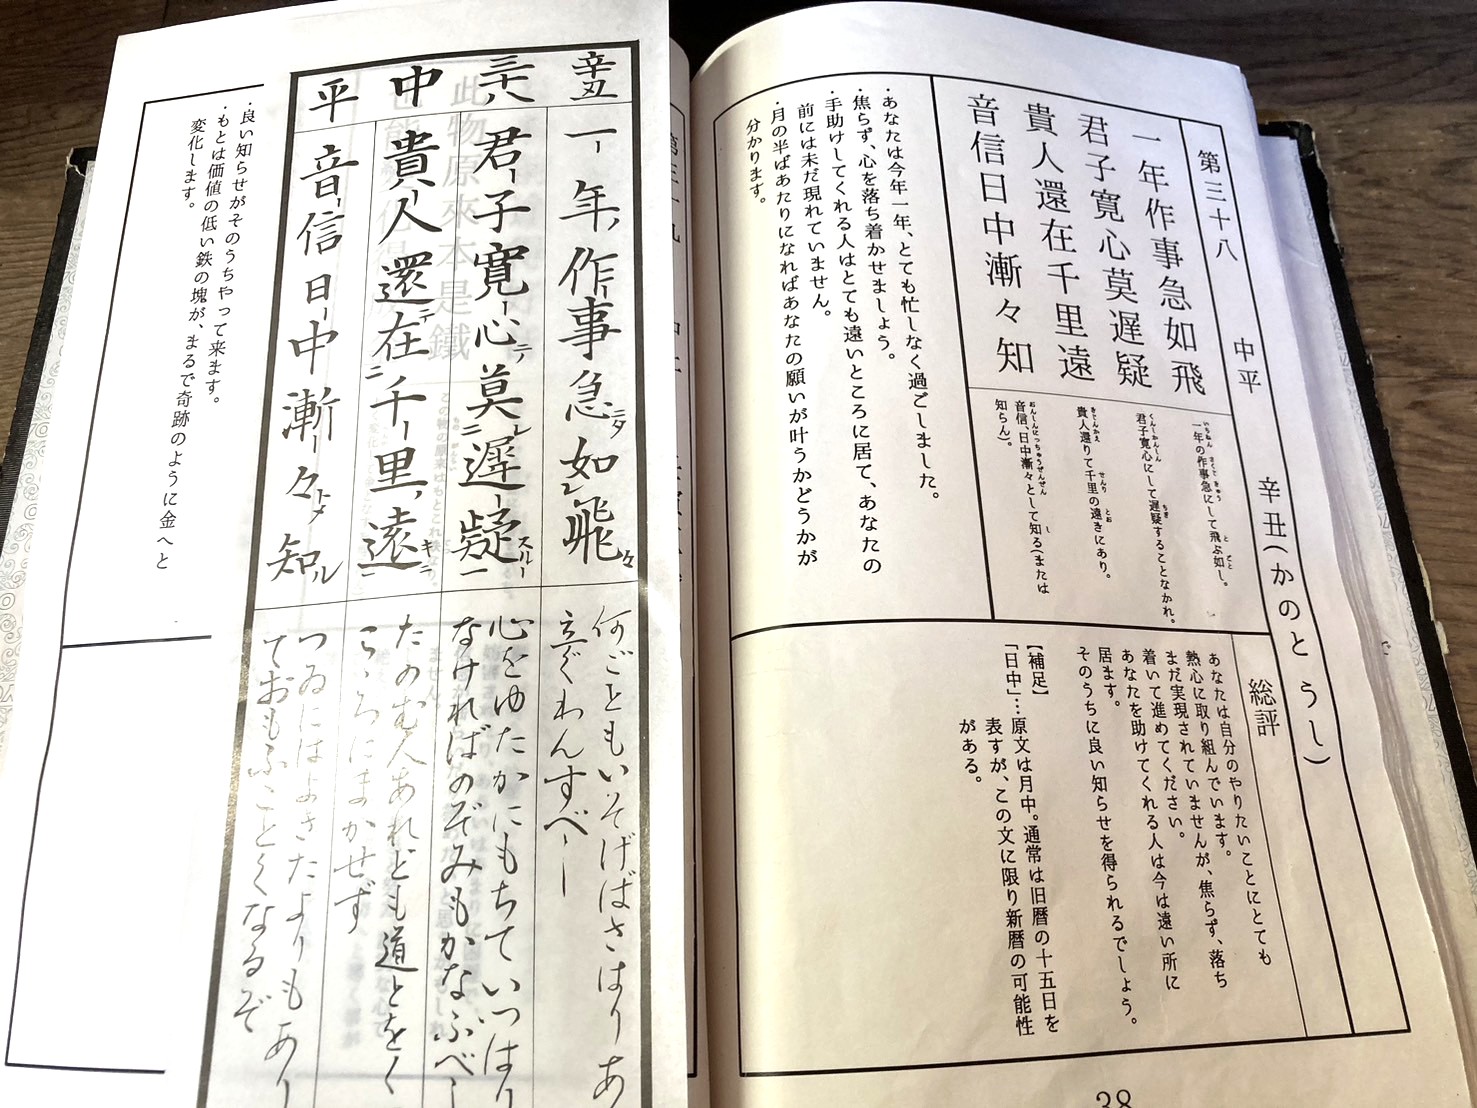 第三十八 中平 辛丑(かのとうし)
一年作事急如飛
君子寛心莫遅疑
貴人還在千里遠
音信日中漸々知
一年の作事急にして飛ぶ如し。
君子寛心にして遅疑することなかれ。
貴人還りて千里の遠きにあり。
音信、日中漸々として知る(または
知らん)。
・あなたは今年一年、とても忙しなく過ごしました。
・焦らず、心を落ち着かせましょう。
・手助けしてくれる人はとても遠いところに居て、あなたの
前には未だ現れていません。
・月の半ばあたりになればあなたの願いが叶うかどうかが
分かります。
総評
あなたは自分のやりたいことにとても
熱心に取り組んでいます。
まだ実現されていませんが、焦らず、落ち
着いて進めてください。
あなたを助けてくれる人は今は遠い所に
居ます。
そのうちに良い知らせを得られるでしょう。
【補足】
「日中」…原文は月中。通常は旧暦の十五日を
表すが、この文に限り新暦の可能性
がある。
38
辛丑 三十八 中平
一年作事急如飛
君子寛心莫遲疑
貴人還在千里遠
音信日中漸々知
何ごともいそげばさはりあ
立ぐわんすべし
心をゆたかにもちていつはり
なければのぞみもかなふべし
たのむ人あれども道とをく
こゝろにまかせず
つゐにはよきたよりもあり
ておもふことくなるぞ
・良い知らせがそのうちやって来ます。
・もとは価値の低い鉄の塊が、まるで奇跡のように金へと
変化します。